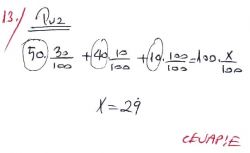 13./
50 · 30/100 + 40 · 10/100 + 10 · 100/100 = 100 · x/100
x = 29
CEVAP/E